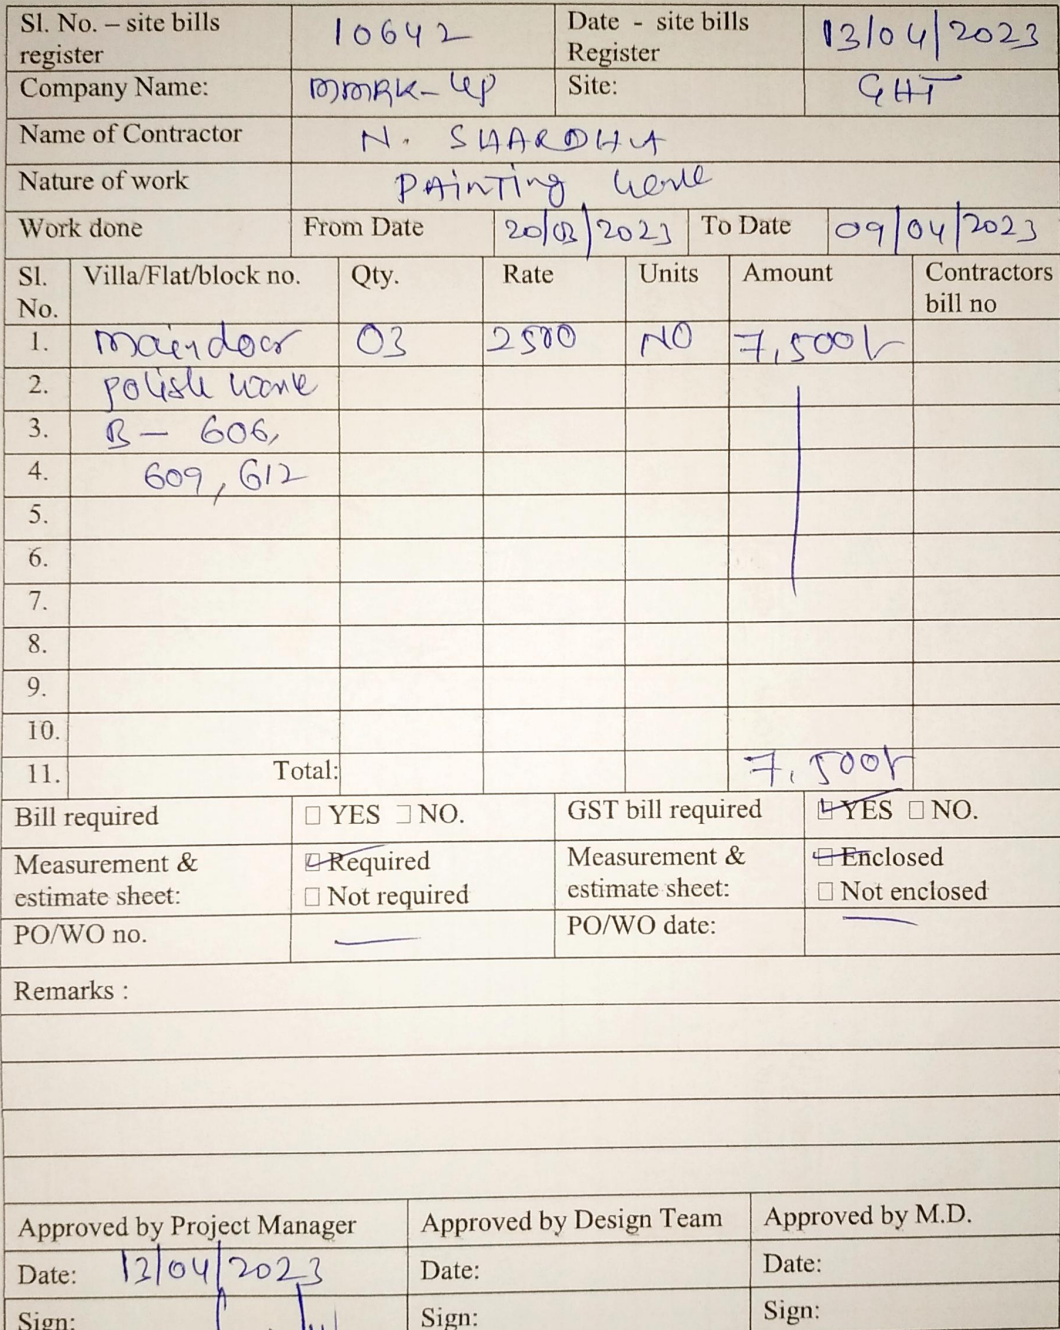 Sl. No. – site bills register 10642 Date - site bills Register 13/04/2023
Company Name: MMRK-UP Site: GHT
Name of Contractor N. SHARDHA
Nature of work PAINTING work
Work done From Date 20/03/2023 To Date 09/04/2023
Sl. No. Villa/Flat/block no. Qty. Rate Units Amount Contractors bill no
1. main door 03 2500 NO 7,500/-
2. polish work
3. B - 606,
4. 609, 612
5.
6.
7.
8.
9.
10.
11. Total: 7,500/-
Bill required □ YES □ NO. GST bill required □ YES □ NO.
Measurement & estimate sheet: □ Required □ Not required Measurement & estimate sheet: □ Enclosed □ Not enclosed
PO/WO no. — PO/WO date: —
Remarks :
Approved by Project Manager Approved by Design Team Approved by M.D.
Date: 13/04/2023 Date: Date:
Sign: Sign: Sign: